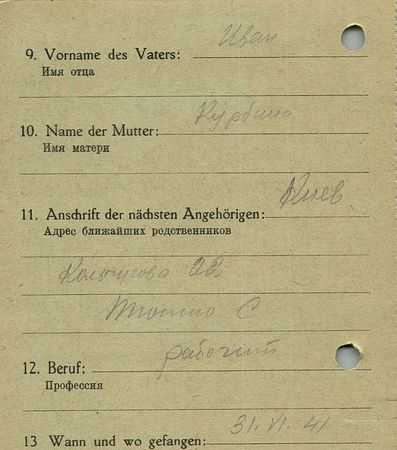 Иван
9. Vorname des Vaters:
Имя отца
Курбина
10. Name der Mutter:
Имя матери
Киев
11. Anschrift der nächsten Angehörigen:
Адрес ближайших родственников
22
С.
рабочий
12. Beruf:
Профессия
31. VI. 41
13 Wann und wo gefangen: